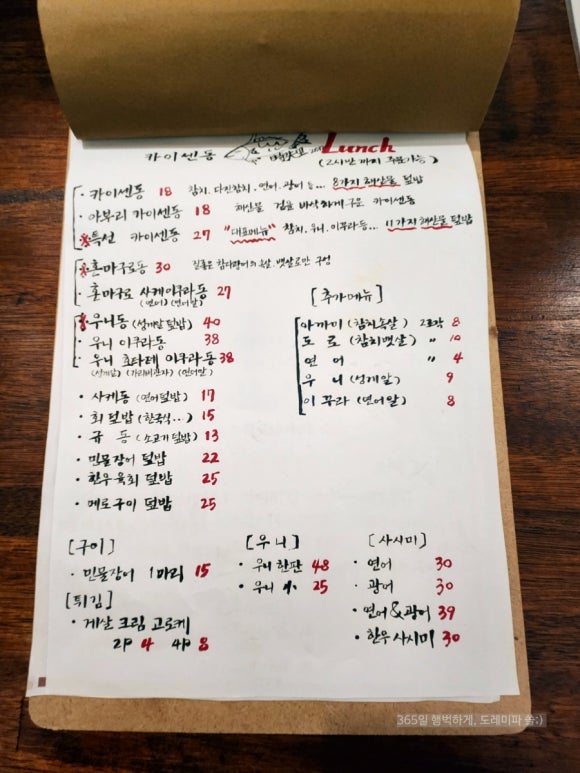 카이센동 Lunch
(2시반 까지 주문가능)
· 카이센동 18 참치, 다진참치, 연어, 광어 등... 8가지 해산물 덮밥
· 아부리 카이센동 18 해산물 겉을 바삭하게 구운 카이센동
· 특선 카이센동 27 "대표메뉴" 참치, 우니, 이쿠라 등... 11가지 해산물 덮밥
· 혼마구로동 30
· 혼마구로 사케이쿠라동 27
(연어) (연어알)
· 우니동 (성게알 덮밥) 40
· 우니 이쿠라동 38
· 우니 호타테 이쿠라동 38
(성게알) (가리비관자) (연어알)
[추가메뉴]
아까미 (참치속살) 2조각 8
도로 (참치뱃살) " 10
연어 " 4
우니 (성게알) 9
이꾸라 (연어알) 8
· 사케동 (연어덮밥) 17
· 회덮밥 (한국식...) 15
· 규동 (소고기 덮밥) 13
· 민물장어 덮밥 22
· 한우육회 덮밥 25
· 메로구이 덮밥 25
[구이]
· 민물장어 1마리 15
[튀김]
· 게살 크림 고로케
2P 4 4P 8
[우니]
· 우니 한판 48
· 우니 小 25
[사시미]
· 연어 30
· 광어 30
· 연어&광어 39
· 한우사시미 30
365일 행벅하게, 도레미파 쏭:)